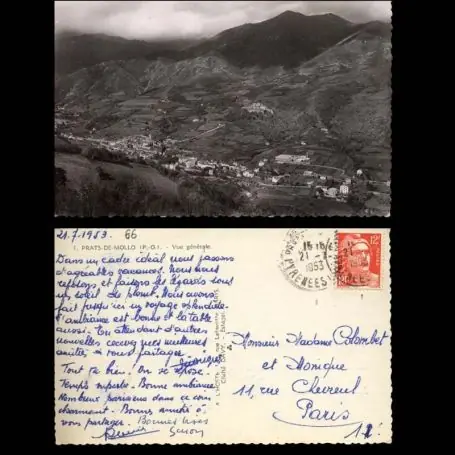 1. PRATS-DE-MOLLO (P.-O.) - Vue générale
21.7.1953. 66
Dans un cadre idéal nous passons
d'agréables vacances. Nous nous
reposons et faisons les lézards sous
un soleil de plomb. Nous avons
fait jusqu'ici un voyage splendide
L'ambiance est bonne et la table
aussi. En attendant d'autres
nouvelles recevez nos meilleures
amitiés à vous partager.
Tout va bien! On se repose!
Temps superbe. Bonne ambiance
Nombreux parisiens dans ce coin
charmant. Bonnes amitiés à
vous partager. Bonnes bises
15
21-7
1953
PYRENEES
12F
Monsieur Madame Colombet
et Monique
11, rue Chevreul
Paris
11